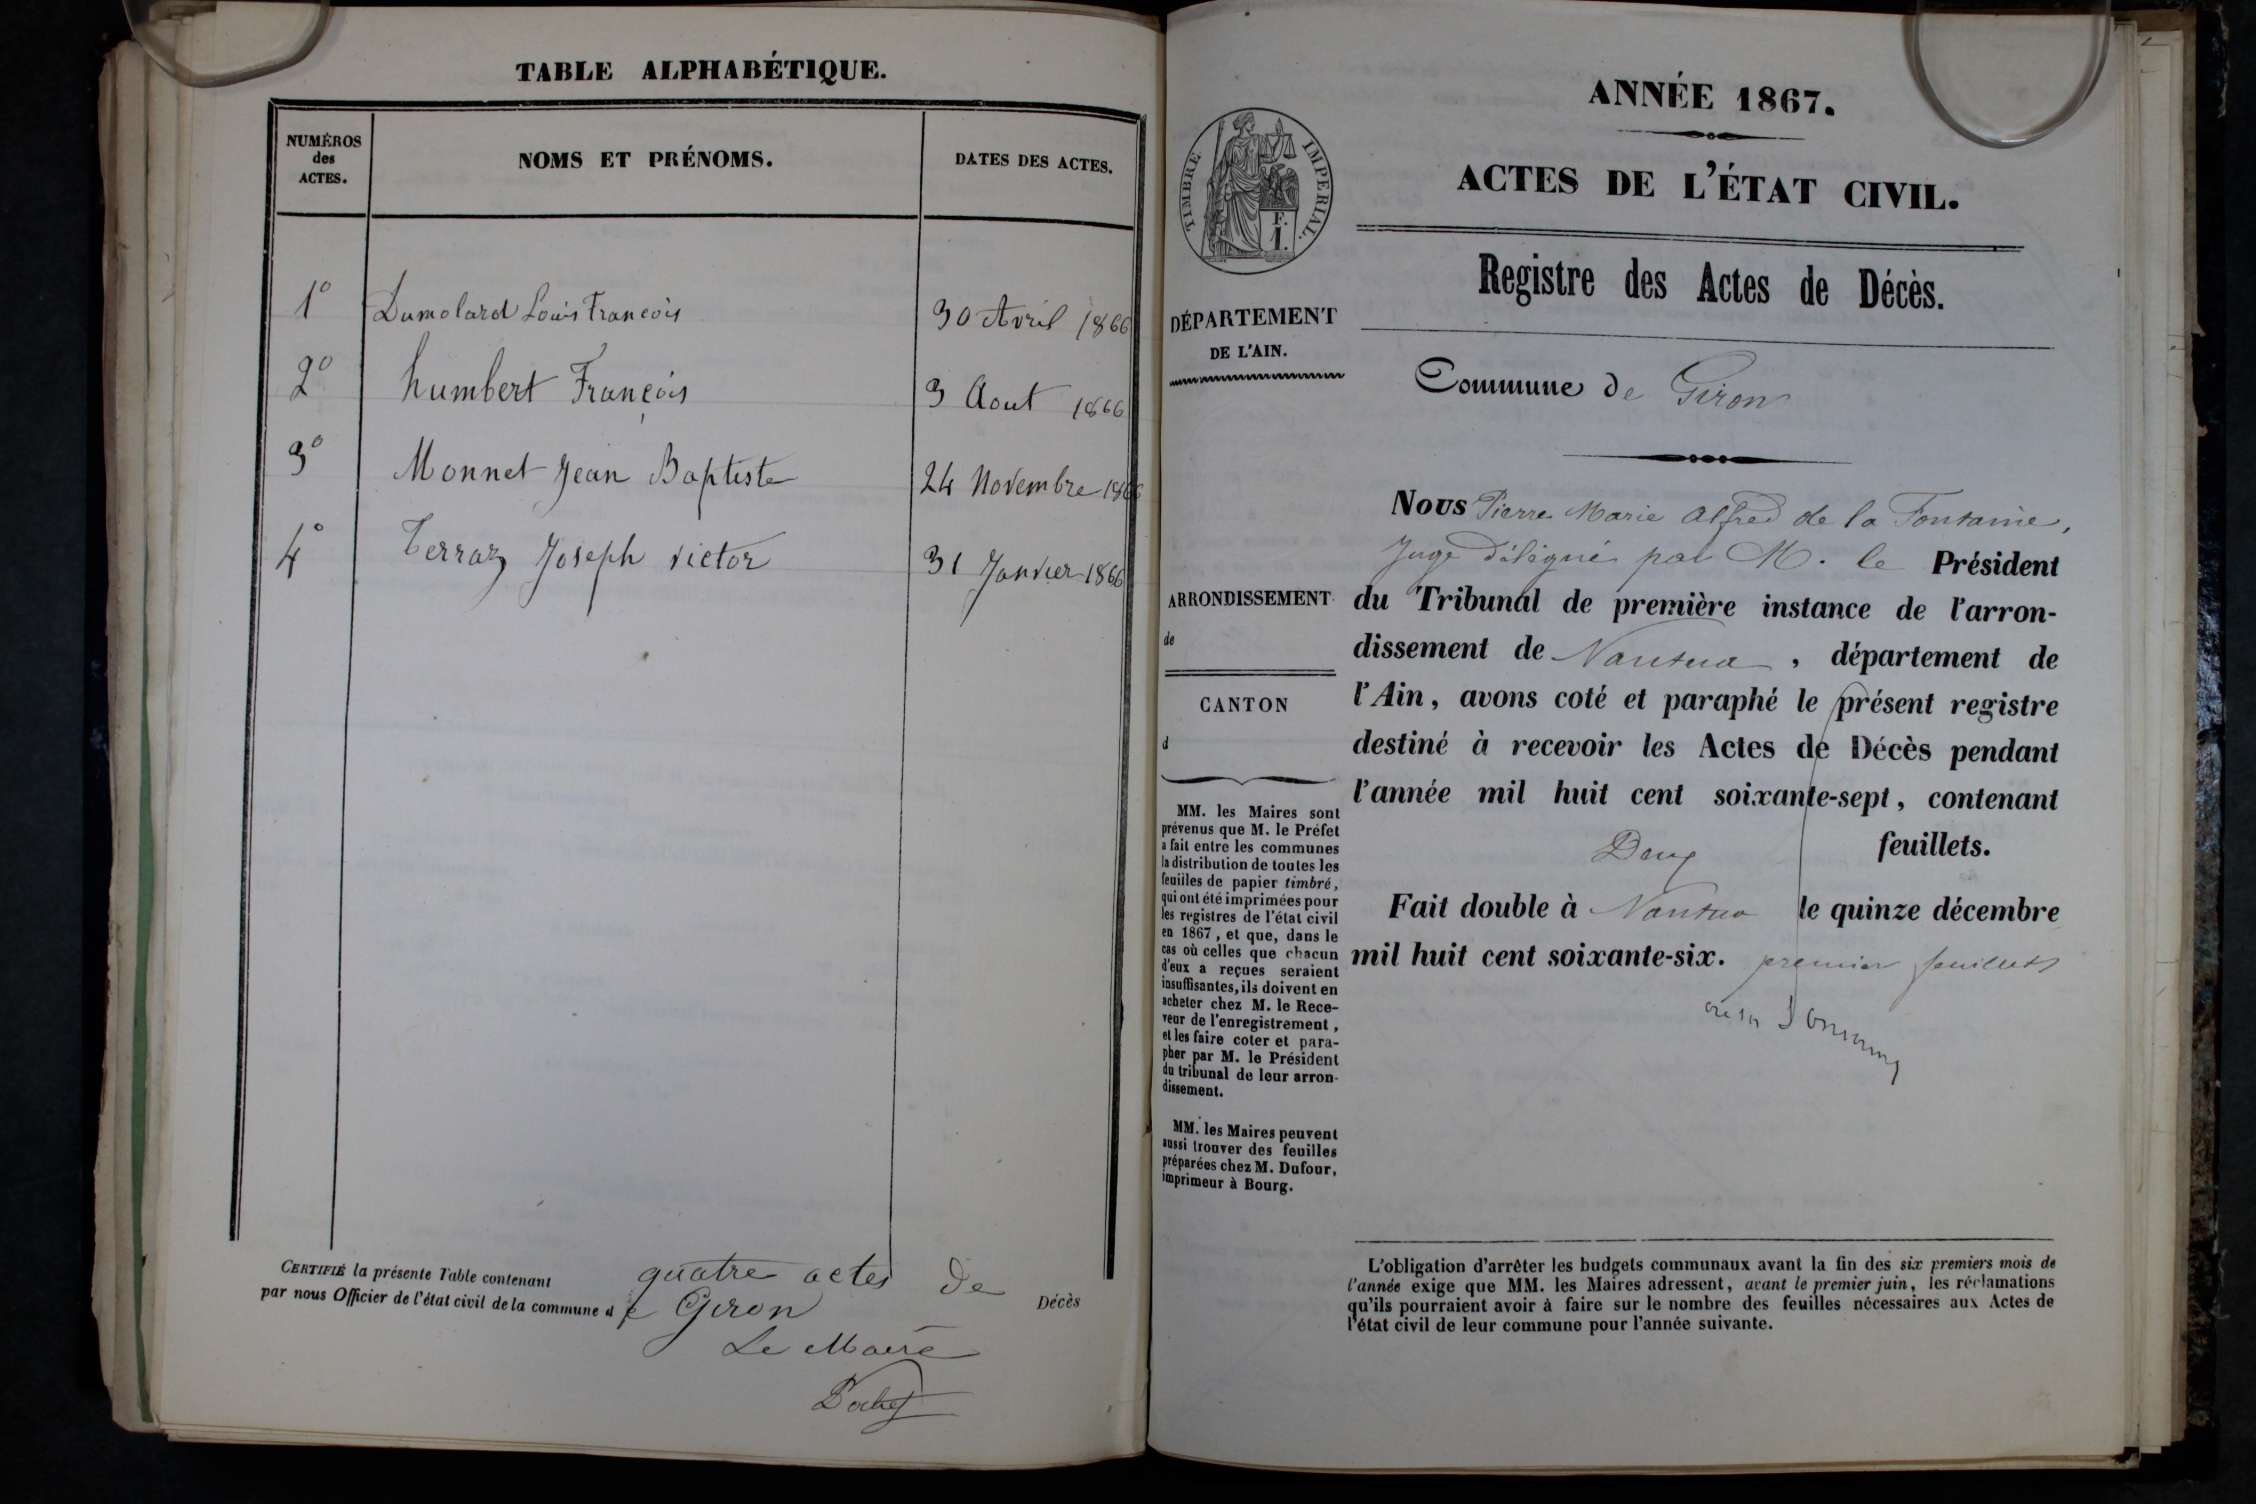 TABLE ALPHABÉTIQUE.
NUMÉROS
des
ACTES.
NOMS ET PRÉNOMS.
DATES DES ACTES.
1° Dumolard Louis François 30 Avril 1866
2° humbert François 3 Aout 1866
3° Monnet Jean Baptiste 24 Novembre 1866
4° Terraz Joseph victor 31 Janvier 1866
CERTIFIÉ la présente Table contenant quatre actes de Décès
par nous Officier de l'état civil de la commune de Giron
Le Maire
TIMBRE IMPERIAL.
F.
1.
DÉPARTEMENT
DE L'AIN.
ARRONDISSEMENT
de
CANTON
d
MM. les Maires sont
prévenus que M. le Préfet
a fait entre les communes
la distribution de toutes les
feuilles de papier timbré,
qui ont été imprimées pour
les registres de l'état civil
en 1867, et que, dans le
cas où celles que chacun
d'eux a reçues seraient
insuffisantes, ils doivent en
acheter chez M. le Rece-
veur de l'enregistrement,
et les faire coter et para-
pher par M. le Président
du tribunal de leur arron-
dissement.
MM. les Maires peuvent
aussi trouver des feuilles
préparées chez M. Dufour,
imprimeur à Bourg.
ANNÉE 1867.
ACTES DE L'ÉTAT CIVIL.
Registre des Actes de Décès.
Commune de Giron
NOUS Pierre Marie Alfred de la Fontaine,
Juge délégué par M. le Président
du Tribunal de première instance de l'arron-
dissement de Nantua, département de
l'Ain, avons coté et paraphé le présent registre
destiné à recevoir les Actes de Décès pendant
l'année mil huit cent soixante-sept, contenant
Deux feuillets.
Fait double à Nantua le quinze décembre
mil huit cent soixante-six. premier feuillets
L'obligation d'arrêter les budgets communaux avant la fin des six premiers mois de
l'année exige que MM. les Maires adressent, avant le premier juin, les réclamations
qu'ils pourraient avoir à faire sur le nombre des feuilles nécessaires aux Actes de
l'état civil de leur commune pour l'année suivante.